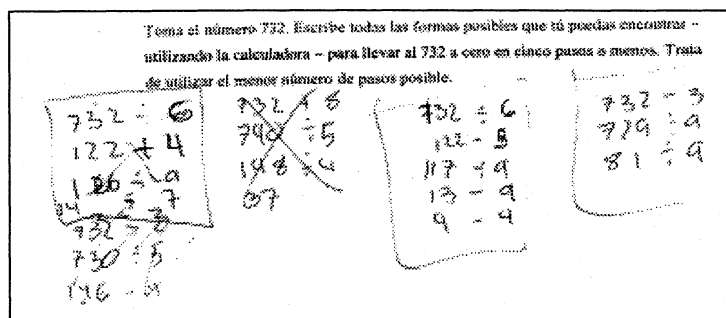 Toma el número 732. Escribe todas las formas posibles que tú puedas encontrar –
utilizando la calculadora – para llevar al 732 a cero en cinco pasos o menos. Trata
de utilizar el menor número de pasos posible.
732 ÷ 6
122 + 4
126 ÷ 9
14 7
732 - 2
730 ÷ 5
146 - 4
732 + 8
740 ÷ 5
148 ÷ 4
37
732 ÷ 6
122 - 5
117 ÷ 9
13 - 9
9 - 9
732 - 3
729 ÷ 9
81 ÷ 9